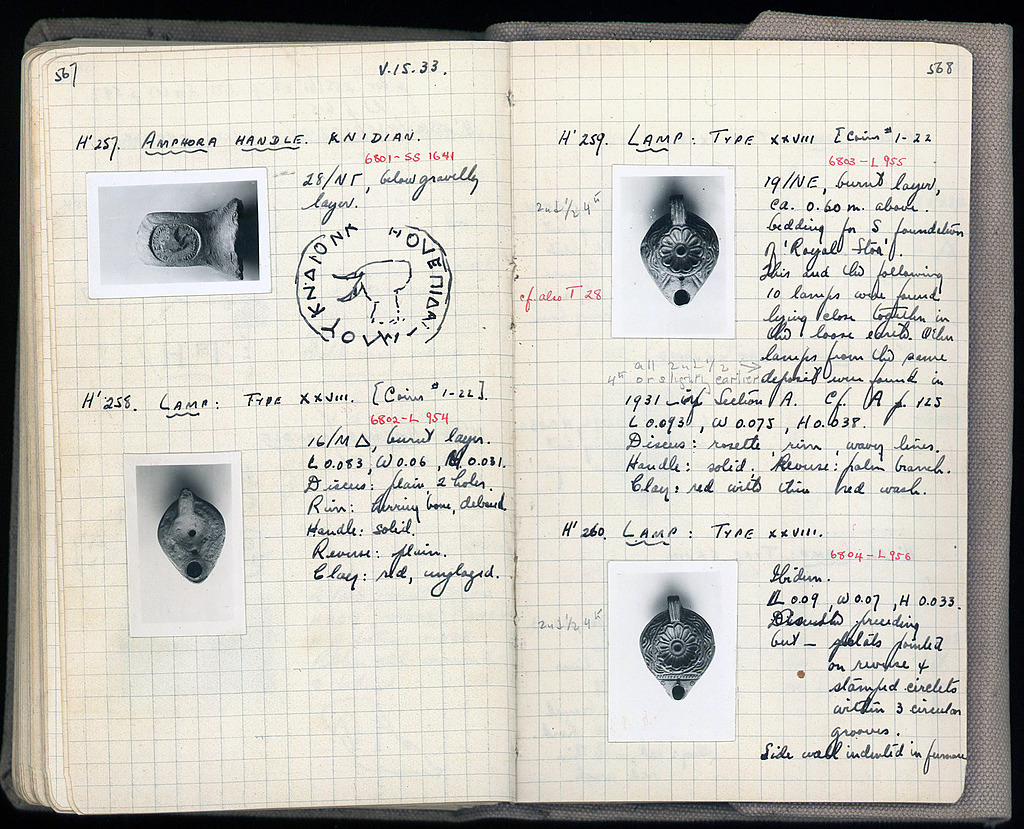 567
V.15.33.
H'257. AMPHORA HANDLE. KNIDIAN.
6801-SS 1641
28/ΝΓ, below gravelly
layer.
H'258. LAMP: TYPE XXVIII. [Coins # 1-22].
6802-L 954
16/ΜΔ, burnt layer.
L 0.083, W 0.06, H 0.031.
Discus: plain 2 holes.
Rim: herring bone, debased
Handle: solid.
Reverse: plain.
Clay: red, unglazed.
568
H'259. LAMP: TYPE XXVIII [Coins # 1-22
6803-L 955
19/ΝΕ, burnt layer,
ca. 0.60 m. above
bedding for S foundation
of 'Royal Stoa'.
This and the following
10 lamps were found
lying close together in
the loose earth. Other
lamps from the same
deposit were found in
1931 Section A. Cf. A p. 125
L 0.093, W 0.075, H 0.038.
Discus: rosette, rim, wavy lines.
Handle: solid. Reverse: palm branch.
Clay: red with thin red wash.
2nd 1/2 4th
cf. also T 28
all 2nd 1/2
4th or slightly earlier
H'260. LAMP: TYPE XXVIII.
6804-L 956
Ibidem.
L 0.09, W 0.07, H 0.033.
preceding
but — petals pointed
on reverse &
stamped circlets
within 3 circular
grooves.
Side wall indented in furnace
2nd 1/2 4th